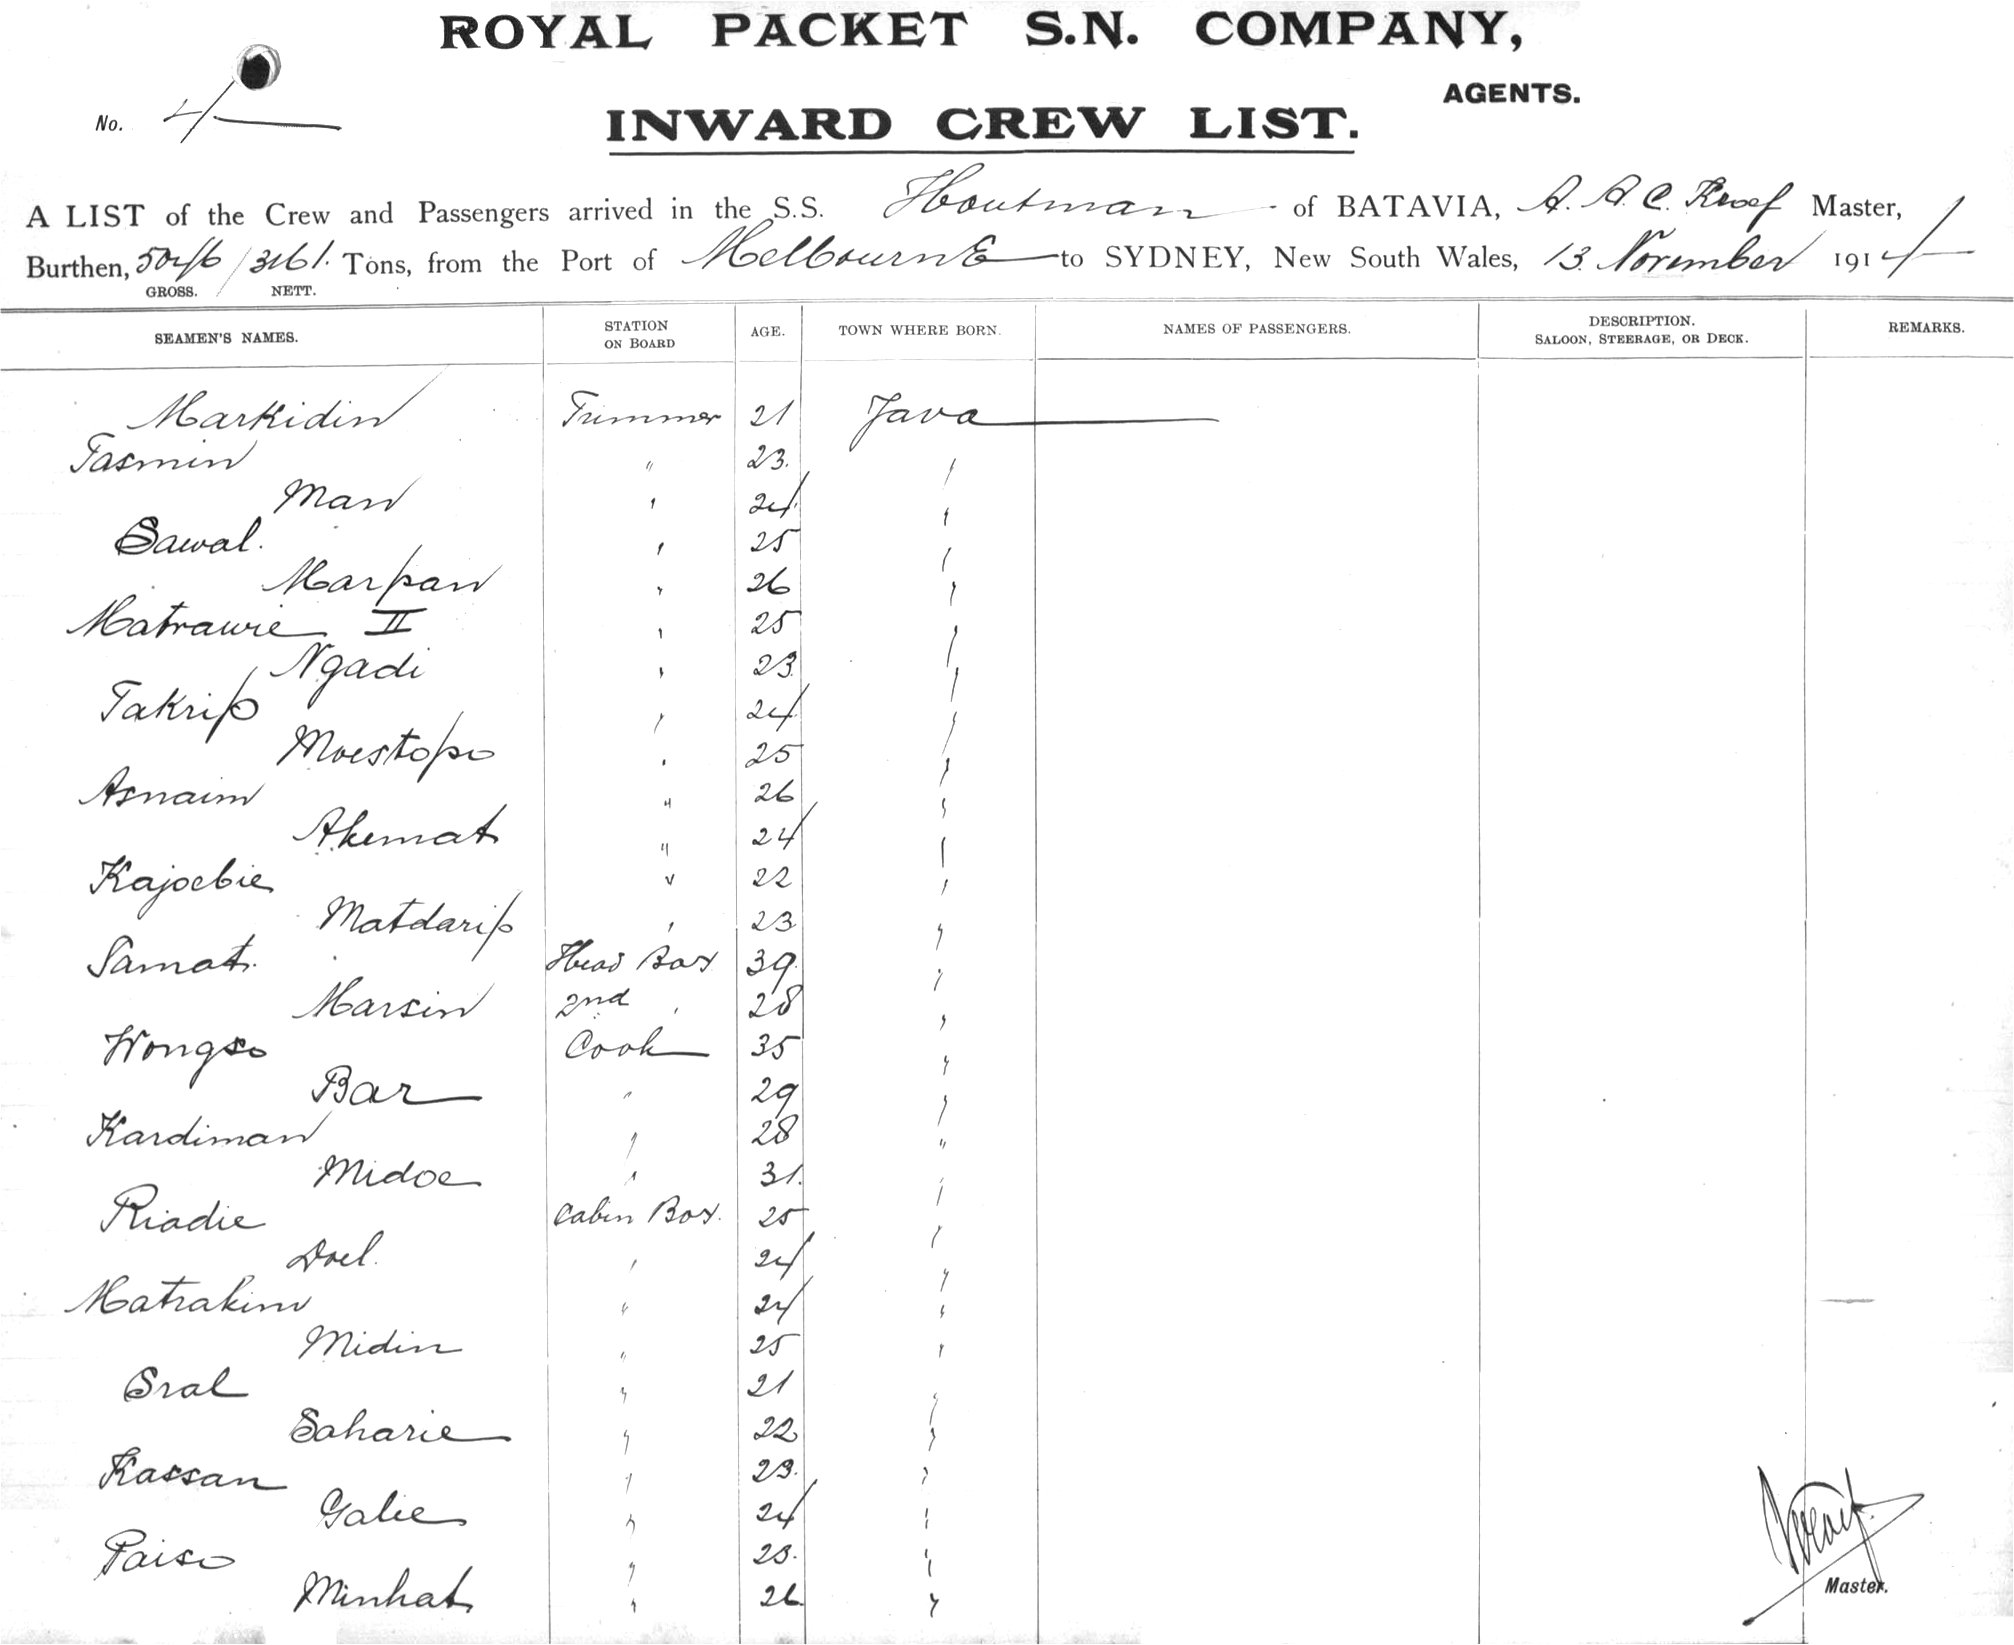 ROYAL PACKET S.N. COMPANY,
AGENTS.
No. 4
INWARD CREW LIST.
A LIST of the Crew and Passengers arrived in the S.S. Houtman of BATAVIA, A. A. C. Kroef Master,
Burthen, 5046 / 3161. Tons, from the Port of Melbourne to SYDNEY, New South Wales, 13 November 1914
GROSS. NETT.
SEAMEN'S NAMES. STATION ON BOARD AGE. TOWN WHERE BORN. NAMES OF PASSENGERS. DESCRIPTION. SALOON, STEERAGE, OR DECK. REMARKS.
Markidin Trimmer 21 Java
Tasmin " 23. "
Man " 24 "
Sawal. " 25 "
Marpan " 26 "
Matrawie II " 25 "
Ngadi " 23 "
Takrip " 24 "
Moestopo " 25 "
Asnaim " 26 "
Akemat " 24 "
Kajoebie " 22 "
Matdarip " 23 "
Samat. Head Boy 39. "
Marsin 2nd " 28 "
Wongso Cook 35 "
Bar " 29 "
Kardiman " 28 "
Midoe " 31. "
Riadie Cabin Boy. 25 "
Doel. " 24 "
Matrakim " 24 "
Midin " 25 "
Sral " 21 "
Saharie " 22 "
Kassan " 23. "
Galie " 24 "
Paiso " 23. "
Minhat " 26 "
Master.